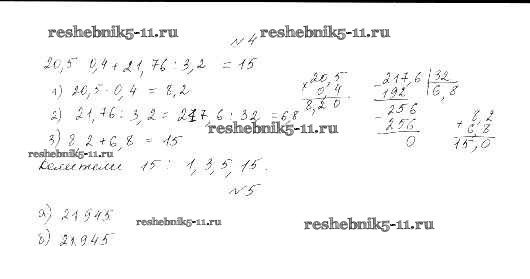 reshebnik5-11.ru
reshebnik5-11.ru
№4
20,5 0,4 + 21,76 : 3,2 = 15
1) 20,5 · 0,4 = 8,2
2) 21,76 : 3,2 = 217,6 : 32 = 6,8
3) 8,2 + 6,8 = 15
× 20,5
0,4
8,20
- 217,6 | 32
192 6,8
- 256
256
0
+ 8,2
6,8
15,0
reshebnik5-11.ru
reshebnik5-11.ru
Делители 15 : 1, 3, 5, 15.
№5
а) 21945
б) 21945
reshebnik5-11.ru
reshebnik5-11.ru